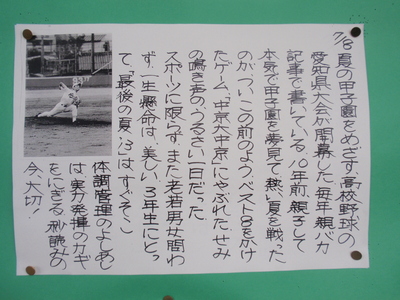 7/8 夏の甲子園をめざす、高校野球の
愛知県大会が開幕した。毎年親バカ
記事で書いている。10年前、親子して
本気で甲子園を夢見て、熱い夏を戦った
のが、つい、この前のよう。ベスト8をかけ
たゲーム、「中京大中京」にやぶれた。せみ
の鳴き声の、うるさい一日だった。
スポーツに限らず、また老若男女問わ
ず、一生懸命は、美しい。3年生にとっ
て、「最後の夏」は、すぐそこ
体調管理のよしあし
は、実力発揮のカギ
をにぎる。秒読みの
今、大切!